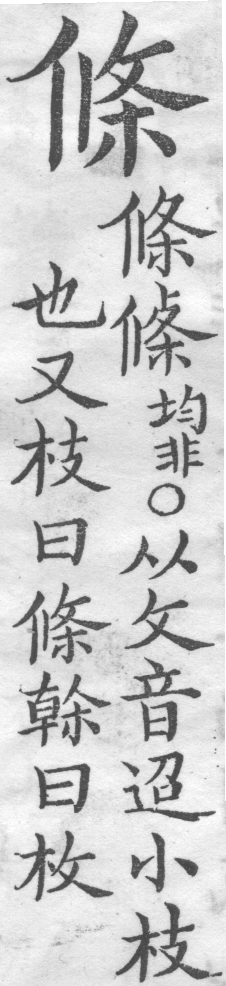 條
條均非○从攵音迢小枝
也又枝曰條榦曰枚